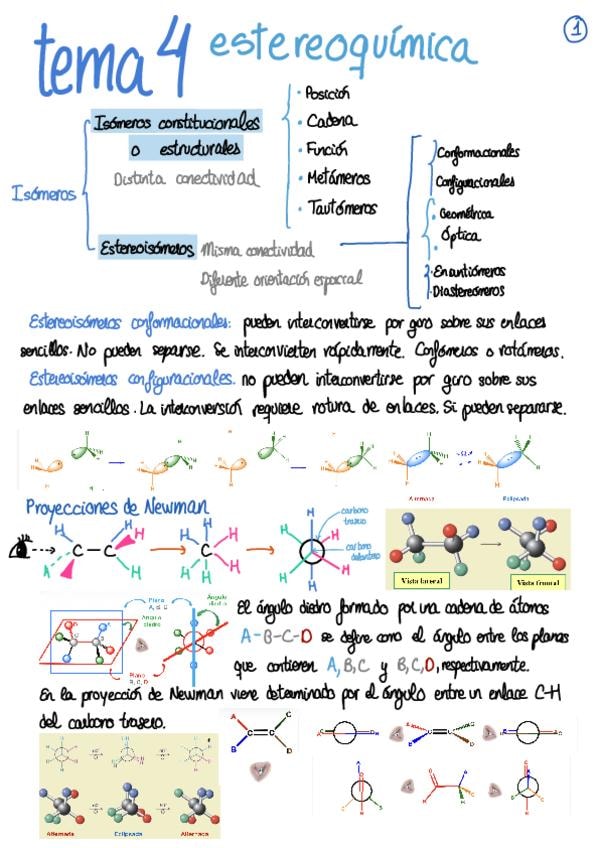 tema 4 estereoquímica
1
Isómeros
Isómeros constitucionales
o estructurales
Distinta conectividad
· Posición
· Cadena
· Función
· Metámeros
· Tautómeros
Estereoisómeros Misma conectividad
Diferente orientación espacial
Conformacionales
Configuracionales
· Geométrica
Óptica
· Enantiómeros
· Diastereómeros
Estereoisómeros conformacionales: pueden interconvertirse por giro sobre sus enlaces
sencillos. No pueden separse. Se interconvierten rápidamente. Confómeros o rotámeros.
Estereoisómeros configuracionales. no pueden interconvertirse por giro sobre sus
enlaces sencillos. La interconversión requiere rotura de enlaces. Si pueden separarse.
Alternada
Eclipsada
Proyecciones de Newman
carbono
trasero
carbono
delantero
H H H H C C
Vista lateral
Vista frontal
Plano
A, B, C
Ángulo
diedro
Ángulo
diedro
Plano
B, C, D
El ángulo diedro formado por una cadena de átomos
A-B-C-D se define como el ángulo entre los planos
que contienen A, B, C y B, C, D, respectivamente.
En la proyección de Newman viene determinado por el ángulo entre un enlace C-H
del carbono trasero.
A C
B D
Alternada
Eclipsada
Alternada